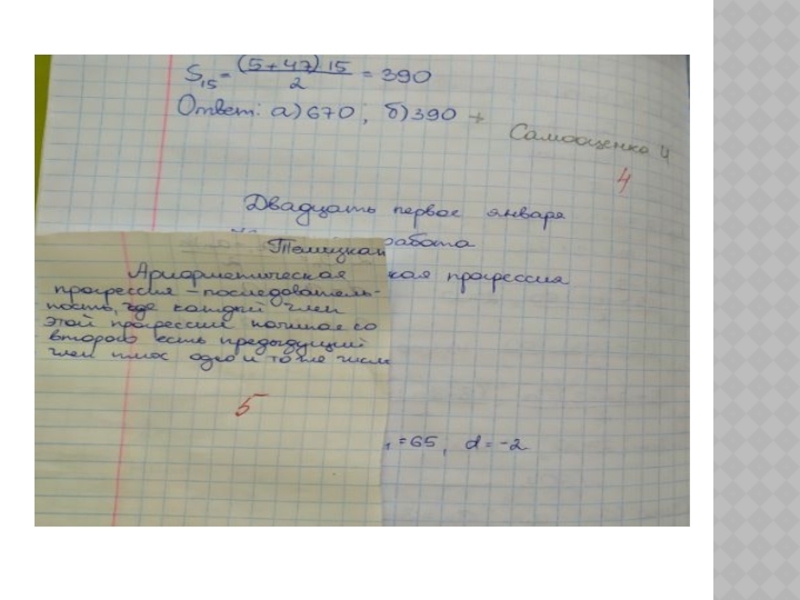 S₁₅ = (5+47)15 / 2 = 390
Ответ: а) 670; б) 390 +
Самооценка 4
4
Двадцать первое января
работа
кая прогрессия
Арифметическая
прогрессия – последователь-
ность, где каждый член
этой прогрессии начиная со
второго есть предыдущий
член плюс одно и то же число
5
₁=65, d=-2